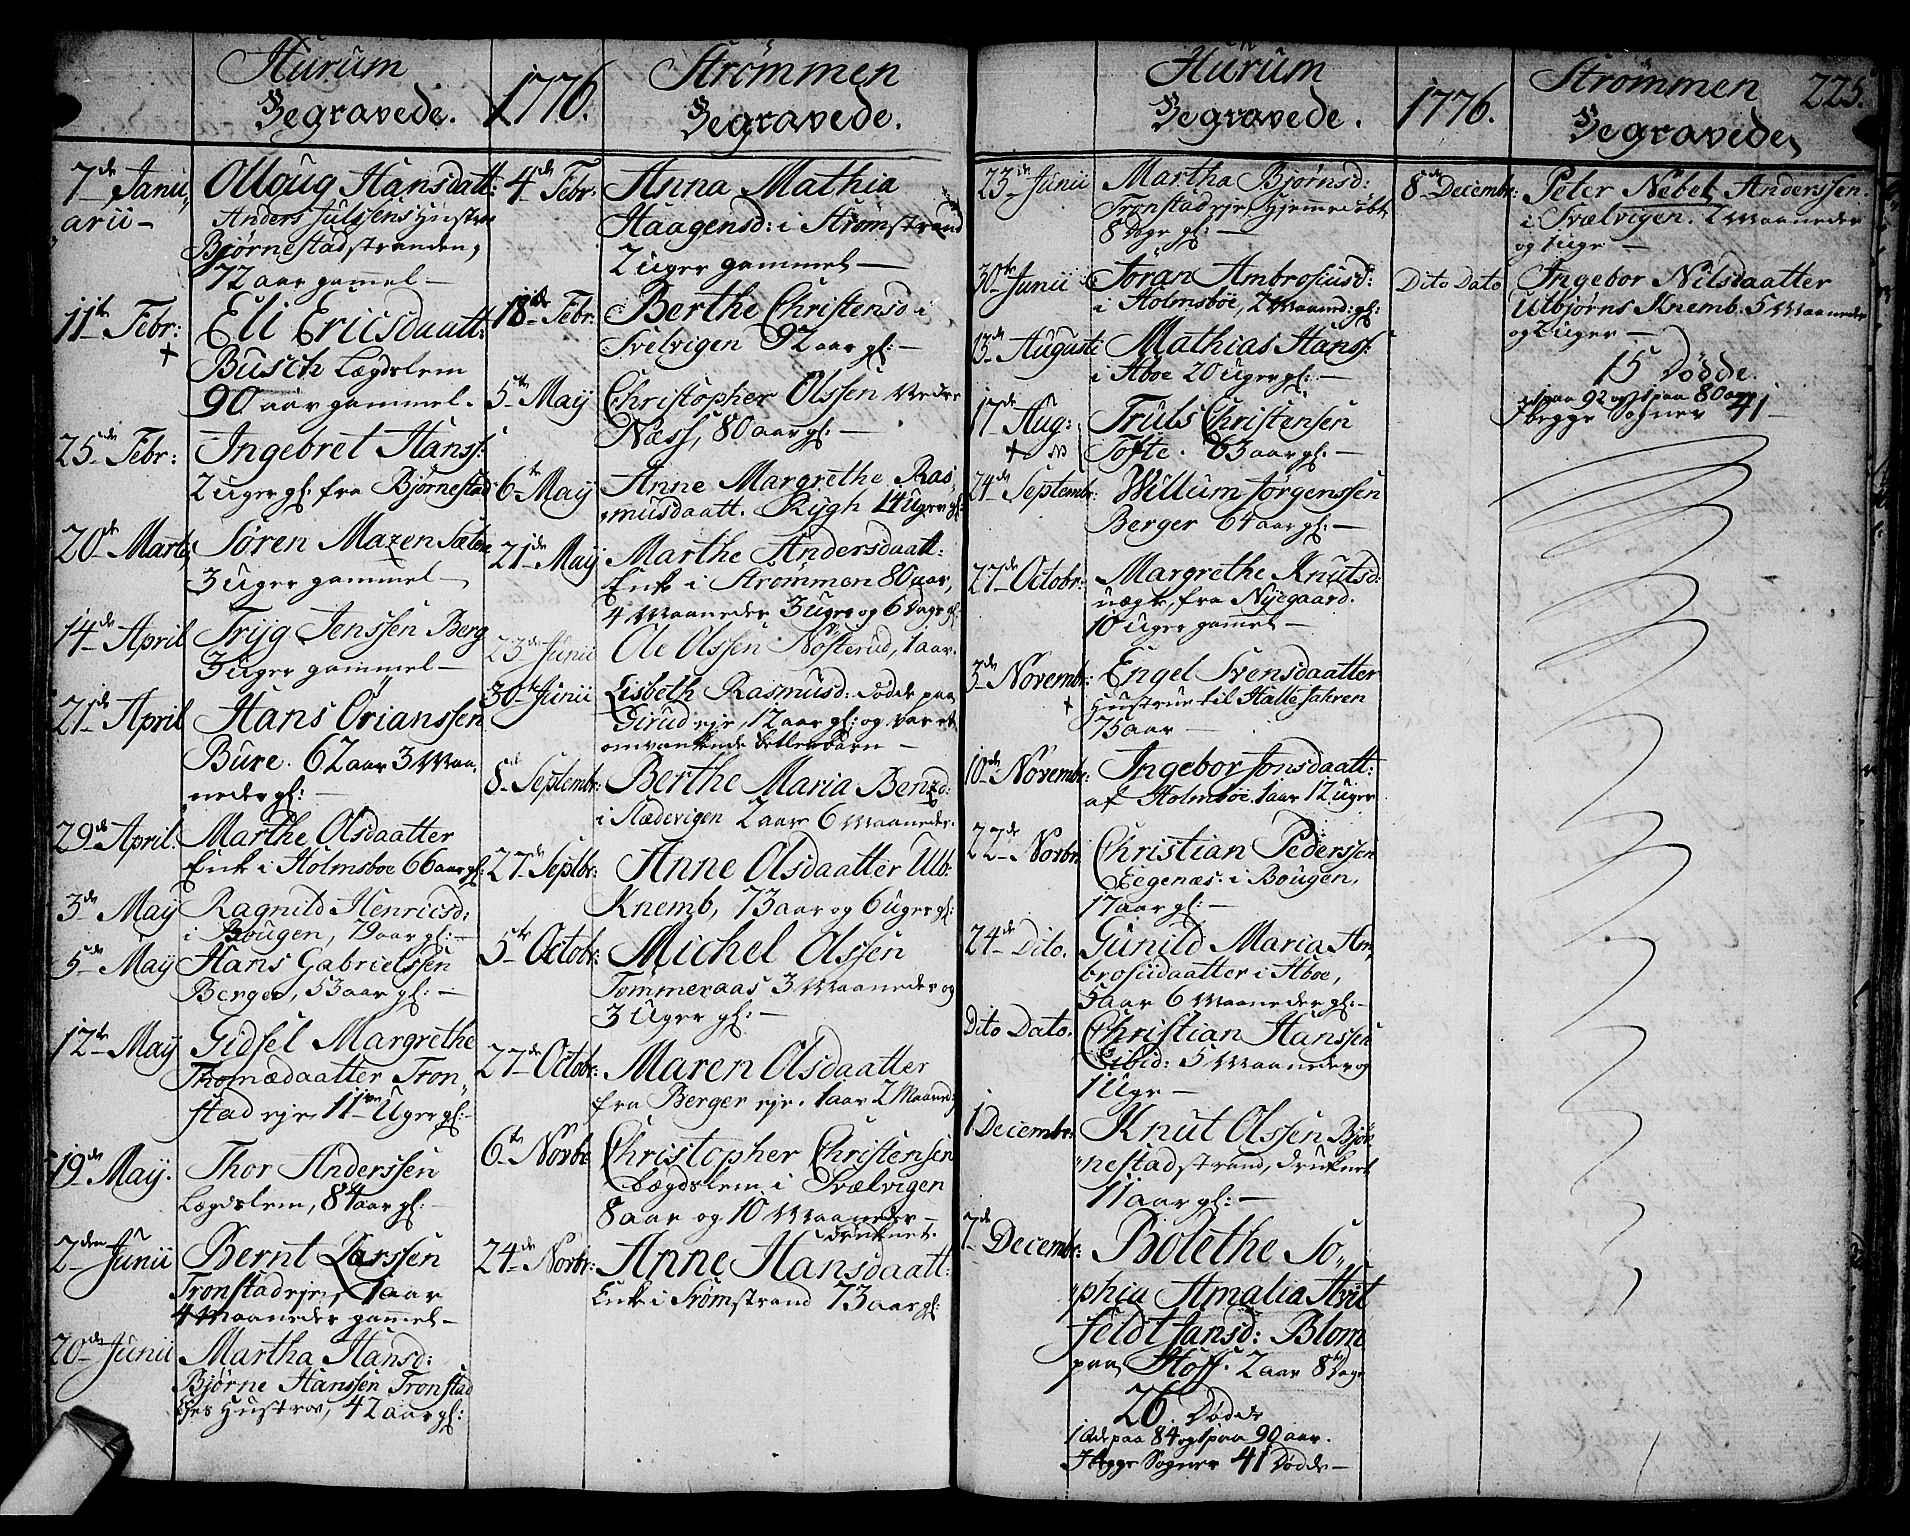 Hurum
Begravede.
1776.
Strømmen
Begravede.
7de Janu
arii –
Olloug Hansdatt:
Anders Julsens Hustru
Bjørnestadstranden,
72 aar gammel –
11te Febr:
Eli Ericsdaatt:
Busch Lægdslem
90 aar gammel.
25de Febr:
Ingebret Hanss:
2 Uger gl: fra Bjørnestad
20de Marti
Søren Mazen Sætre
3 Uger gammel –
14de April
Tryg Jenssen Berg
3 Uger gammel –
21de April
Hans Örianssen
Bure. 62 aar 3 Maa
neder gl: –
29de April.
Marthe Olsdaatter
Enke i Holmsboe 66 aar gl:
3de May
Ragnild Henricsd:
i Bougen, 79 aar gl: –
5de May
Hans Gabrielssen
Berger, 53 aar gl: –
12te May
Gidsel Margrethe
Thomædaatter Tron
stad eje, 11ve Uger gl:
19de May.
Thor Anderssen
Lægdslem, 84 aar gl: –
2den Junii
Bernt Larssen
Tronstad eje, 1 aar
4 Maaneder gammel –
20de Junii
Martha Hansd:
Bjørne Hanssen Tronstad
ejes Hustroe, 42 aar gl:
4de Febr:
Anna Mathia
Haagensd: i Strømstrand
2 Uger gammel –
18de Febr:
Berthe Christensd i
Svelvigen 92 aar gl: –
5te May
Christopher Olssen Neder
Næss, 80 aar gl: –
6te May
Anne Margrethe Ras
musdaatt. Rygh 14 Uger gl:
21de May
Marthe Andersdaatt:
Enke i Strømmen 80 aar,
4 Maaneder 3 Uger og 6 Dage gl:
23de Junii
Ole Olssen Nosterud, 1 aar.
30te Junii
Lisbeth Rasmusd: døde paa
Girud eje, 12 aar gl: og var et
omvankende betlerbarn –
8de Septembr:
Berthe Maria Benzd:
i Stædevigen 2 aar 6 Maaneder
27de Septbr:
Anne Olsdaatter Ulb:
Knemb, 73 aar og 6 Uger gl:
5te Octobr:
Michel Olssen
Tommeraas 3 Maaneder og
3 Uger gl: –
27de Octobr:
Maren Olsdaatter
fra Berger eje. 1 aar 2 Maaned:
6te Novbr
Christopher Christensen
Lægdslem i Svælvigen
8 aar og 10 Maaneder –
druknet.
24de Novbr:
Anne Hansdaatt:
Enke i Strømstrand 73 aar gl:
Hurum
Begravede.
1776.
Strømmen
Begravede,
225.
23de Junii
Martha Bjørnsd:
Tronstad eje, Hjemmedøbt
8 Dage gl: –
30te Junii
Søran Ambrosiusd:
i Holmsboe, 2 Maaned: gl:
13de Augusti
Mathias Hanss:
i Aboe 20 Uger gl: –
17de Aug:
Truls Christensen
Tofte. 63 aar gl: –
24de Septembr:
Willum Jørgenssen
Berger 64 aar gl: –
27de Octobr:
Margrethe Knutsd:
uægte, fra Nyegaard.
10 Uger gammel –
3de Novembr:
Engel Svensdaatter
Hustrue til Halte Jahren
75 aar –
10de Novembr:
Ingebor Jonsdaatt:
af Holmsboe, 1 aar 12 Uger
22de Novbr
Christian Pederssen
Eegenæs: i Bougen,
17 aar gl: –
24de Dito.
Gunild Maria Am
brosiidaatter i Aboe,
5 aar 6 Maaneder gl: –
Dito Dato.
Christian Hanssen
Eibid: 5 Maaneder og
1 Uge –
1 Decembr:
Knut Olssen Bjør
nestad strand, druknet
11 aar gl: –
7de Decembr:
Bolethe So
phia Amalia Hvit
feldt Jansd: Blom
paa Hoff. 2 aar 8te Dage
26 Døde
1 Ude paa 84 og 1 paa 90 aar.
I begge Sogner 41 Døde –
8de Decembr:
Peter Nebel Anderssen
i Svælvigen. 2 Maaneder
og 1 Uge –
Dito Dato
Ingebor Nilsdaatter
Ulbjørns Knemb: 5 Maaneder
og 2 Uger –
15 Dødde.
1 paa 92 og 1 paa 80 aar
I begge Sogner 41 –